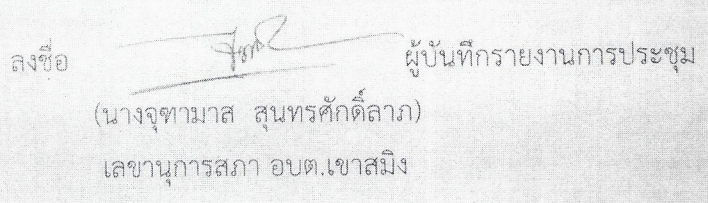 ลงชื่อ ผู้บันทึกรายงานการประชุม
(นางจุฑามาส สุนทรศักดิ์ลาภ)
เลขานุการสภา อบต.เขาสมิง